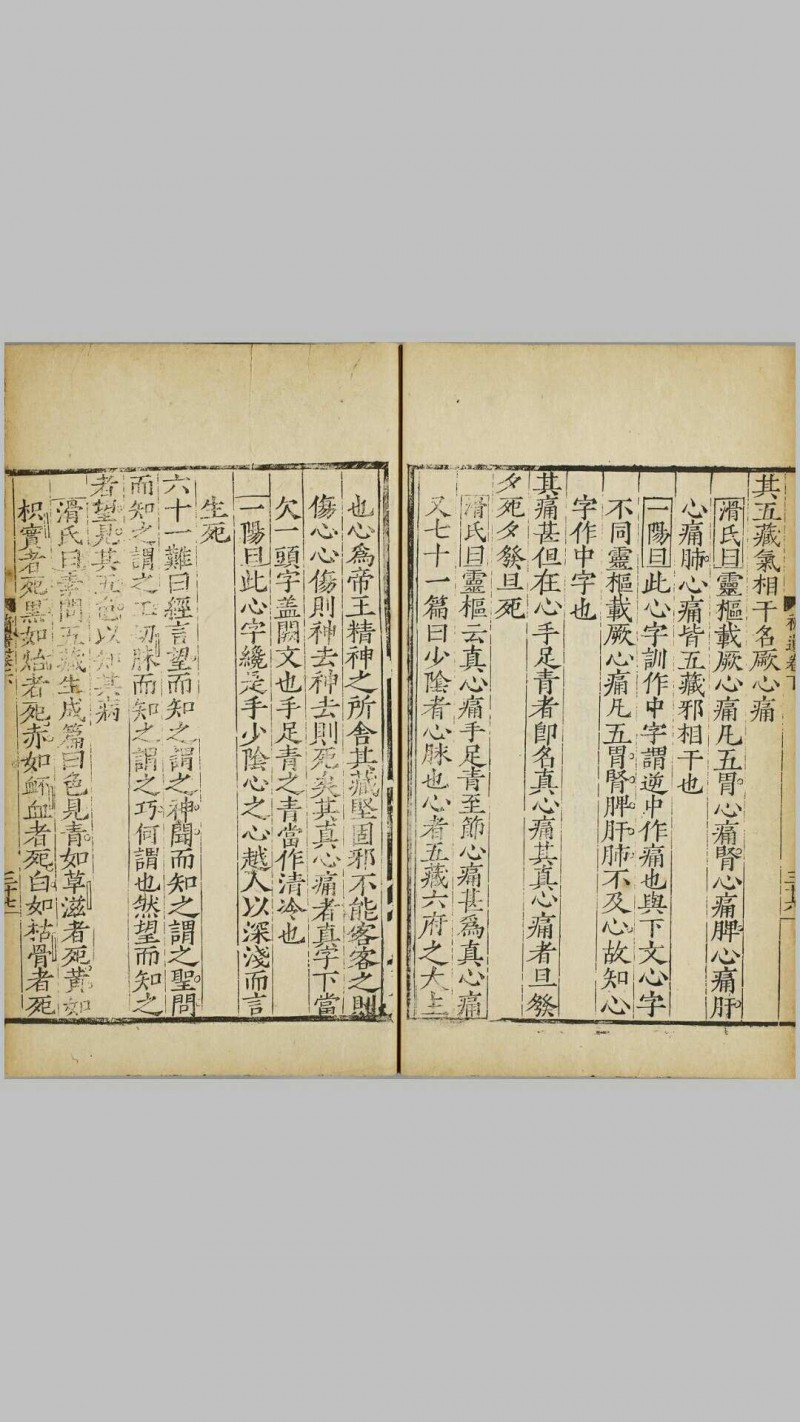 其五藏氣相干名厥心痛
滑氏曰靈樞載厥心痛凡五胃心痛腎心痛脾心痛肝
心痛肺心痛皆五藏邪相干也
一陽曰此心字訓作中字謂逆中作痛也與下文心字
不同靈樞載厥心痛凡五胃腎脾肝肺不及心故知心
字作中字也
其痛甚但在心手足青者卽名真心痛其真心痛者旦發
夕死夕發旦死
滑氏曰靈樞云真心痛手足青至節心痛甚爲真心痛
又七十一篇曰少陰者心脉也心者五藏六府之大主
也心爲帝王精神之所舍其藏堅固邪不能客客之則
傷心心傷則神去神去則死矣其真心痛者真字下當
欠一頭字盖闕文也手足青之青當作清冷也
一陽曰此心字纔是手少陰心之心越人以深淺而言
生死
六十一難曰經言望而知之謂之神聞而知之謂之聖問
而知之謂之工切脉而知之謂之巧何謂也然望而知之
者望見其五色以知其病
滑氏曰素問五藏生成篇曰色見青如草滋者死黃如
枳實者死黑如炲者死赤如衃血者死白如枯骨者死
卷下
三十六
三十七